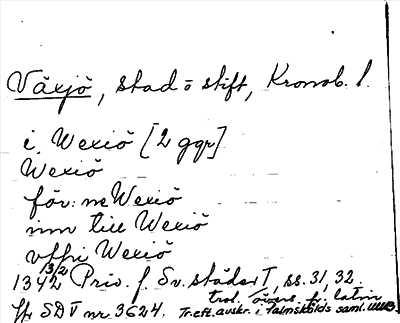 Växjö, stad o stift, Kronob. l.
i. Wexiö [2 ggr]
Wexiö
för: ne Wexiö
inn till Wexiö
vthi Wexiö
1342 13/2 Priv. f. Sv. städer I, ss. 31, 32.
trol. övers. fr. latin
jfr SD V nr 3624. Tr. eft. avskr. i Palmskiölds saml. UUB.